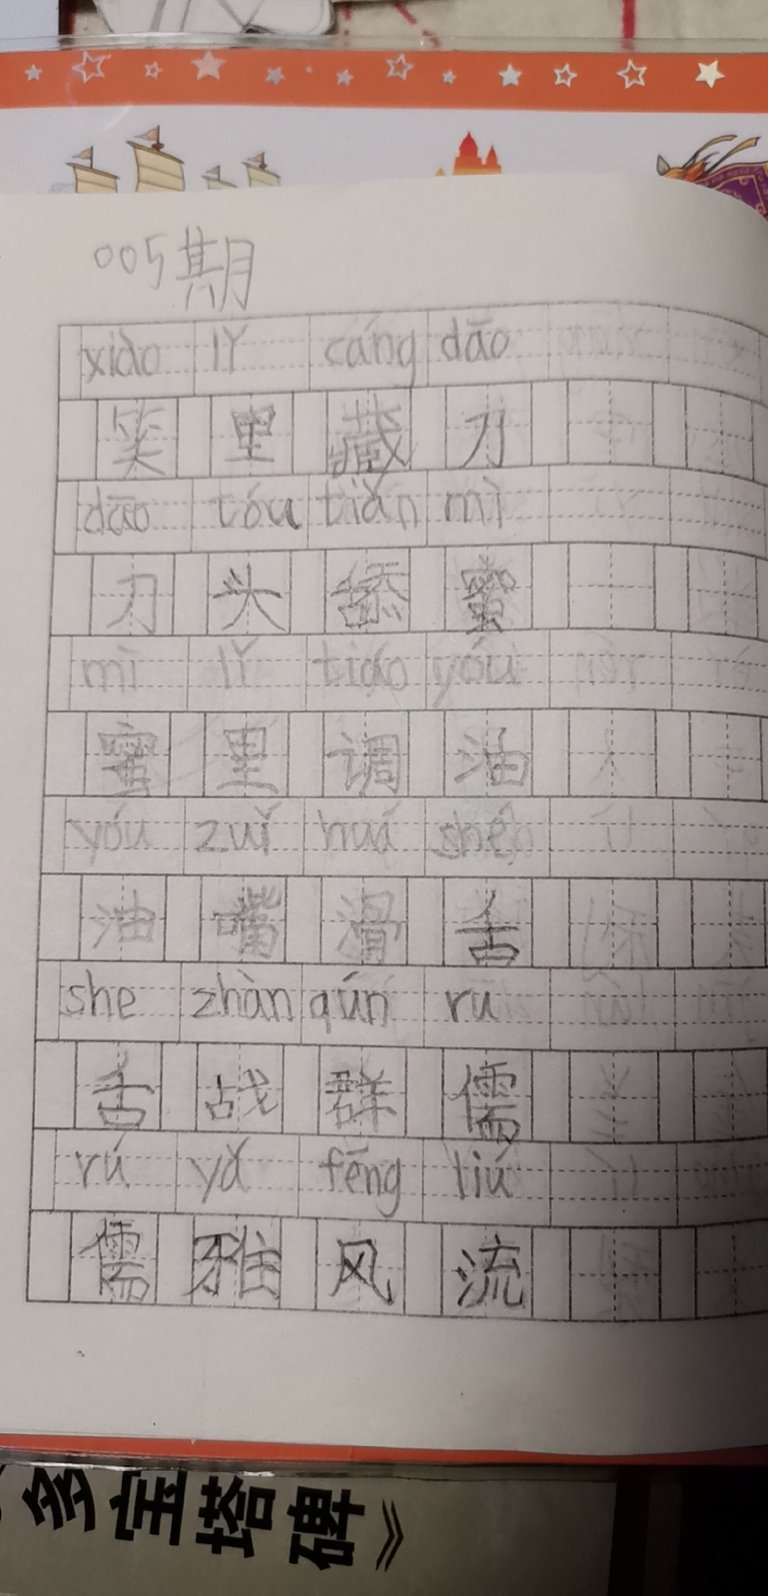 005期
xiào lǐ cáng dāo
笑里藏刀
dāo tóu tiǎn mì
刀头舔蜜
mì lǐ tiáo yóu
蜜里调油
yóu zuǐ huá shé
油嘴滑舌
she zhàn qún ru
舌战群儒
rú yǎ fēng liú
儒雅风流
多宝塔碑》